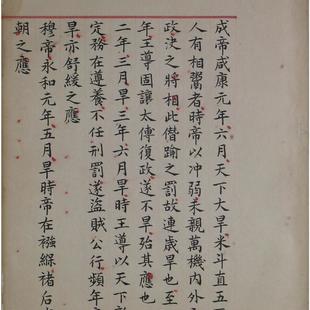 成帝咸康元年六月天下大旱米斗直五
人有相鬻者時帝以冲弱未親萬機内外
政决之將相此僭踰之罰故連歲旱也至
年王導固讓太傅復政遂不旱殆其應也
二年三月旱三年六月旱時王導以天下
定務在遵養不任刑罰遂盜賊公行頻年
旱亦舒緩之應
穆帝永和元年五月旱時帝在襁緥褚后
朝之應